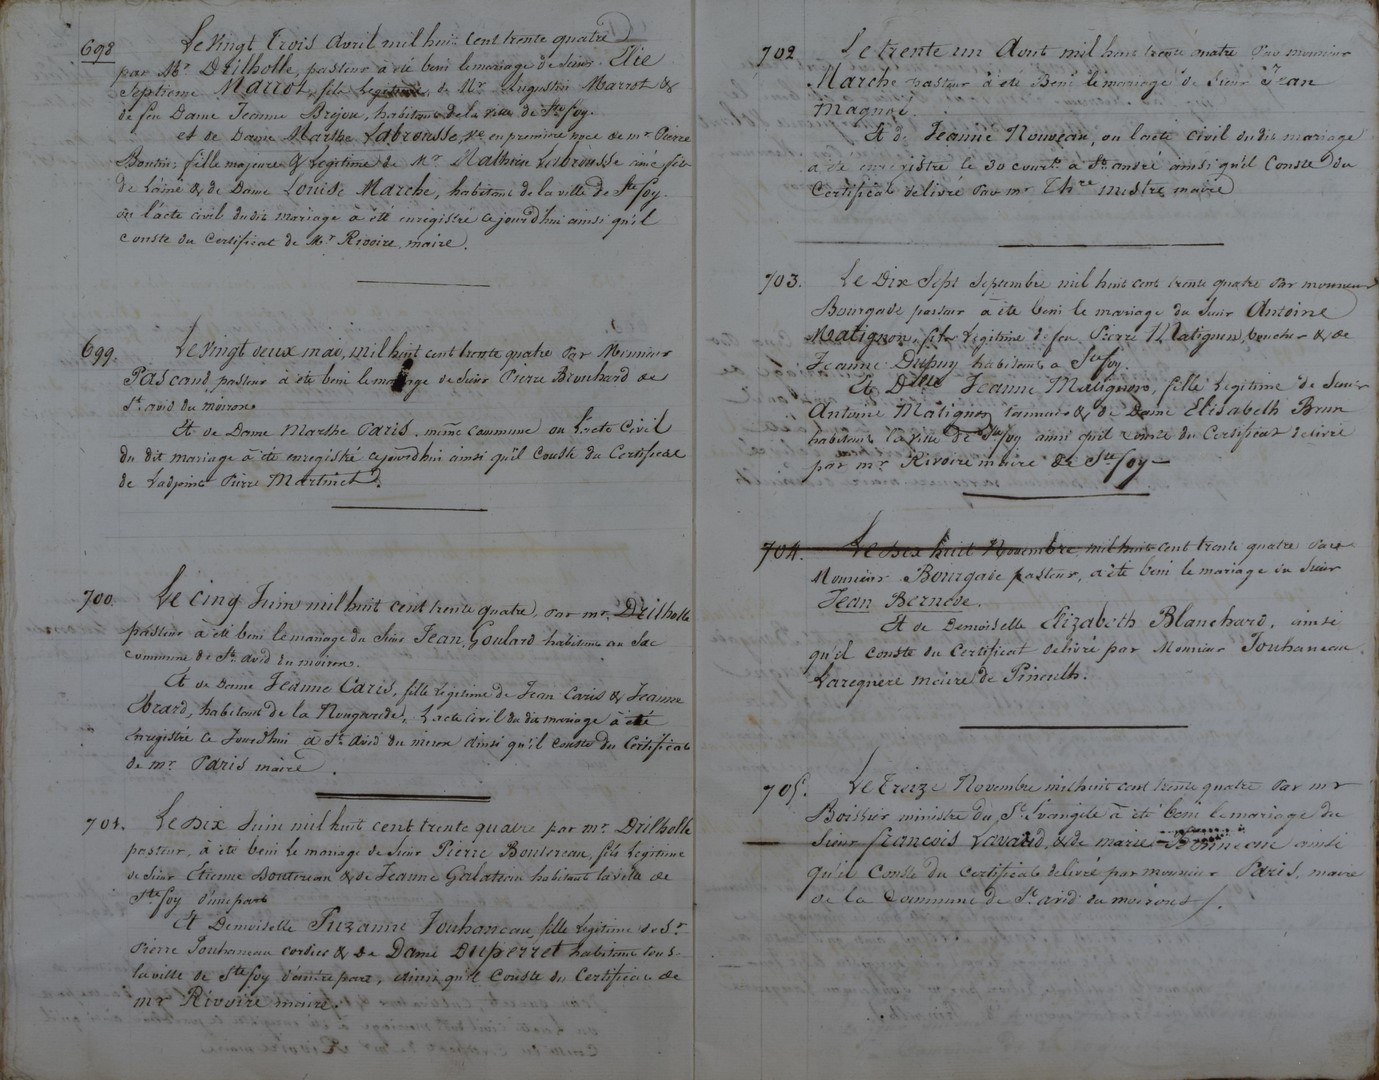 698 Le Vingt Trois Avril mil huit cent trente quatre
par Mr. Drilholle, pasteur à été beni le mariage de sieur Elie
Septieme Marrot, fils Legitime de Mr. Augustin Marrot &
de feu Dame Jeanne Brejou, habitans de la ville de Ste foy.
et de Dame Marthe Labrousse, Ve. en premiere noce de mr. Pierre
Boutin; fille majeure & Legitime de Mr. Mathieu Labrousse ainé fils
de L'ainé & de Dame Louise Marche, habitans de la ville de Ste foy.
ou l'acte civil du dit mariage à été enregistre ce jourd'hui ainsi qu'il
conste du Certificat de Mr. Rivoire, maire.
699. Le Vingt deux mai, mil huit cent trente quatre Par Monsieur
Pascaud, pasteur à été beni le mariage de sieur Pierre Brouhard de
St. avid du moiron
Et de Dame Marthe Paris, même commune ou L'acte Civil
du dit mariage à été enregistré ce jourd'hui ainsi qu'il Conste du Certificat
de Ladjoint Pierre Martinet.
700. Le Cinq Juin mil huit cent trente quatre, Par mr. Drilholle
pasteur à été beni le mariage du sieur Jean Goulard habitant au
commune de St. avid du moiron.
Et de Dame Jeanne Caris, fille Legitime de Jean Caris & Jeanne
Brard, habitans de la Nougarede, L'acte Civil du dit mariage à été
enregistré ce Jourd'hui à St. avid du moiron ainsi qu'il conste du Certificat
de mr. Paris maire.
701. Le Dix Juin mil huit cent trente quatre par mr. Drilholle
pasteur, à été beni le mariage de sieur Pierre Boutereau, fils Legitime
de sieur Etienne Boutereau & de Jeanne Galateau habitant la ville de
Ste foy d'une part
Et Demoiselle Suzanne Jouhaneau, fille Legitime de Sr.
Pierre Jouhaneau cordier & de Dame Duperret habitans tous
la ville de Ste foy d'autre part, ainsi qu'il Conste du Certificat de
mr. Rivoire maire.
702. Le trente un Aout mil huit trente quatre Par monsieur
Marche pasteur à été Beni le mariage de Sieur Jean
Magnac.
Et de Jeanne Nouveau, ou l'acte civil du dit mariage
a été enregistré le 30 courant à St. andré ainsi qu'il Conste du
Certificat delivré Par mr. Thre. mestre maire
703. Le Dix Sept Septembre mil huit cent trente quatre Par monsieur
Bourgade pasteur à été beni le mariage du sieur Antoine
Matignon, fils Legitime de feu Pierre Matignon, boucher & de
Jeanne Dupuy habitans a Ste foy.
Et Delle Jeanne Matignon, fille Legitime de sieur
Antoine Matignon tanneur & de Dame Elisabeth Brun
habitans la ville de Ste foy ainsi qu'il conste du Certificat delivré
par mr. Rivoire maire de Ste foy
704. Le Dix huit Novembre, mil huit cent trente quatre Par
Monsieur Bourgade pasteur, a été beni le mariage du sieur
Jean Bernede.
Et de Demoiselle Elizabeth Blanchard, ainsi
qu'il conste du Certificat delivré par Monsieur Jouhaneau
Laregnere maire de Pineuilh.
705. Le Treize Novembre mil huit cent trente quatre Par mr
Boissier ministre du St. Evangile à été beni le mariage du
Sieur françois Lavaud, & de marie ainsi
qu'il Conste du Certificat delivré par monsieur Paris, maire
de la Commune de St. avid du moiron